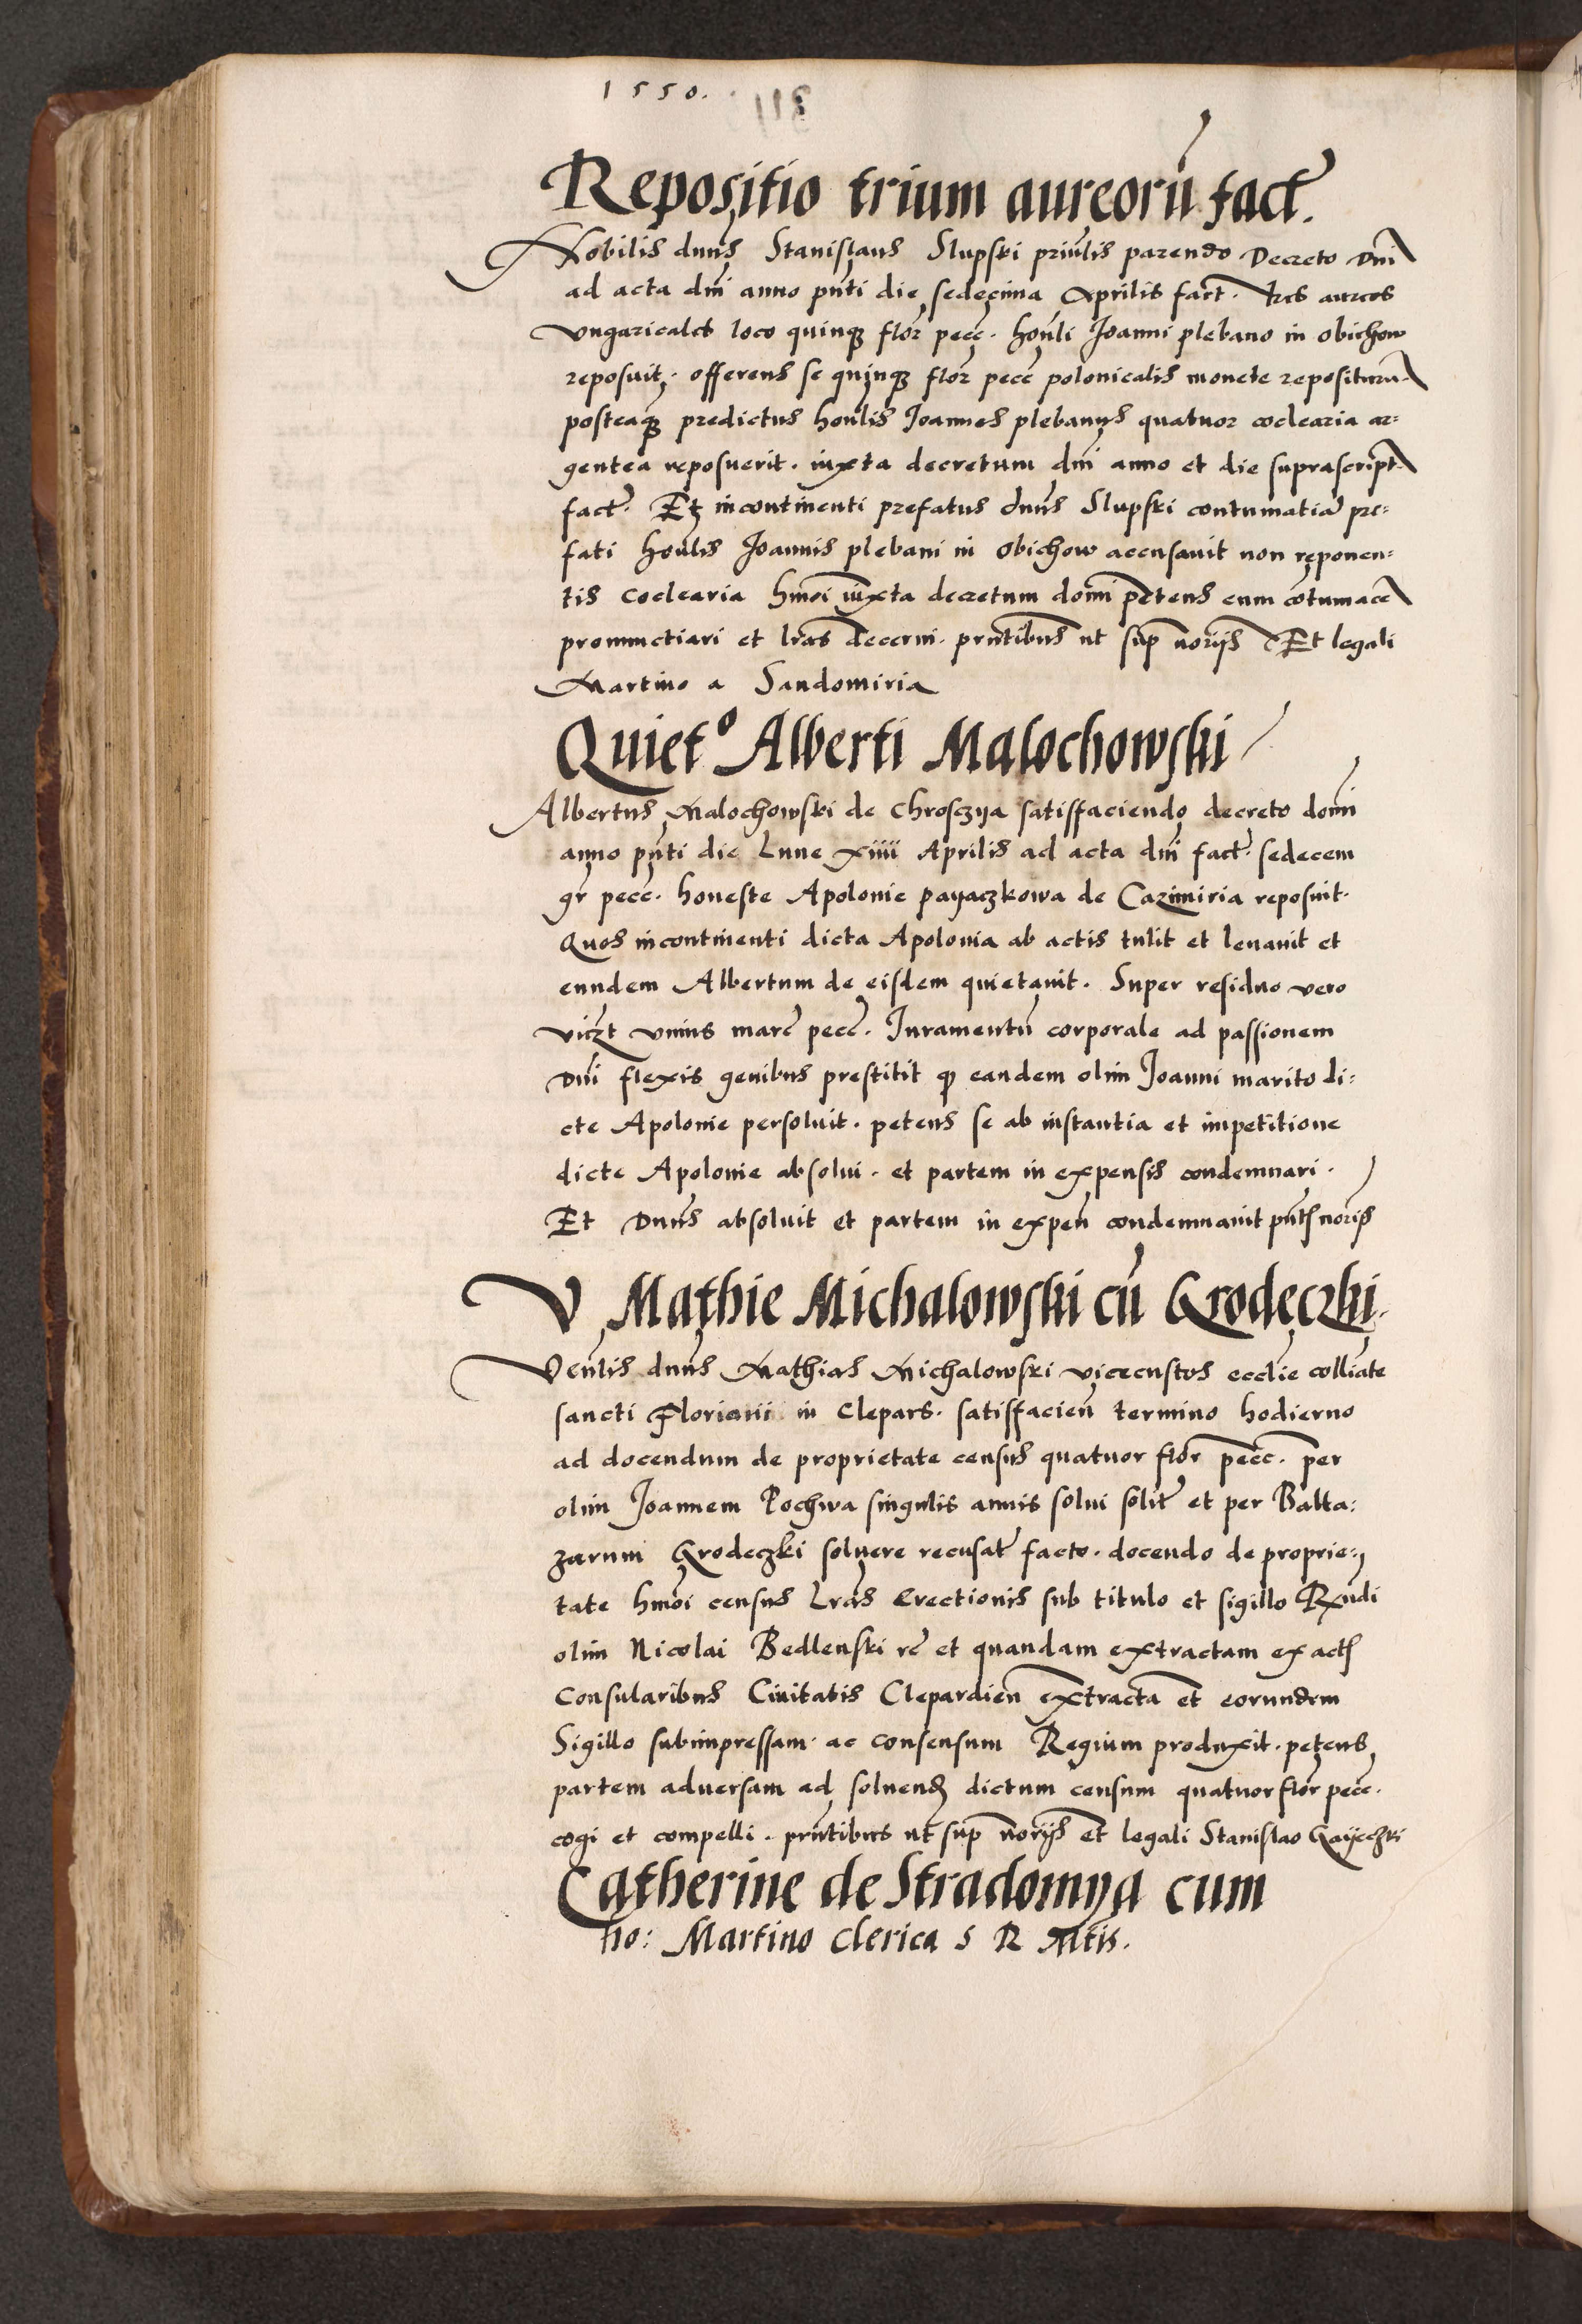 1550.
Repositio trium aureorū fact.
Nobilis dnns Stanislaus Slupski priulis parendo Decreto Dni
ad acta dni anno pnti die sedecima Aprilis fact. tres aureos
vngaricales loco quinq flor pecc. honli Joanni plebano in Obichow
reposuit. offerens se quinq flor pecc polonicalis monete repositurū
posteaq predictus honlis Joannes plebanus quatuor coclearia ar=
gentea reposuerit. iuxta decretum dni anno et die suprascript
fact. Et incontinenti prefatus dnns Slupski contumatiā pre=
fati honlis Joannis plebani in Obichow accusauit non reponen=
tis coclearia hmoi iuxta decretum domi petens eum cōtumacē
pronunctiari et lras decerni. prntibus ut sup norijs Et legali
Martino a Sandomiria
Quietº Alberti Malochowski
Albertus Malochowski de Chrosczya satisfaciendo decreto domi
anno pnti die Lune xiiii Aprilis ad acta dni fact. sedecem
gr pecc. honeste Apolonie payaczkowa de Cazimiria reposuit.
Quos incontinenti dicta Apolonia ab actis tulit et leuauit et
eundem Albertum de eisdem quietauit. Super residuo vero
viczt vnius marc pecc. Iuramentū corporale ad passionem
Dni flexis genibus prestitit q eandem olim Joanni marito di=
cte Apolonie persoluit. petens se ab instantia et impetitione
dicte Apolonie absolui. et partem in expensis condemnari.
Et Dnns absoluit et partem in expen condemnauit pnts noris
V Mathie Michalowski cū Grodeczki.
Venlis dnns Mathias Michalowski vicecustos ecclie colliate
sancti Floriani in Clepars. satisfacien termino hodierno
ad docendum de proprietate census quatuor flor pecc. per
olim Joannem Pochwa singulis annis solui solit et per Balta=
zarum Grodeczki soluere recusat facto. docendo de proprie=
tate hmoi census Lras Erectionis sub titulo et sigillo Rxndi
olim Nicolai Bedlenski rc et quandam extractam ex acts
Consularibus Ciuitatis Clepardien extracta et eorundem
Sigillo subimpressam. ac consensum Regium produxit. petens
partem aduersam ad soluend dictum censum quatuor flor pecc.
cogi et compelli. prntibus ut sup norijs et legali Stanislao Gayeczki
Catherine de Stradomya cum
ho: Martino Clerica S R Mtis.